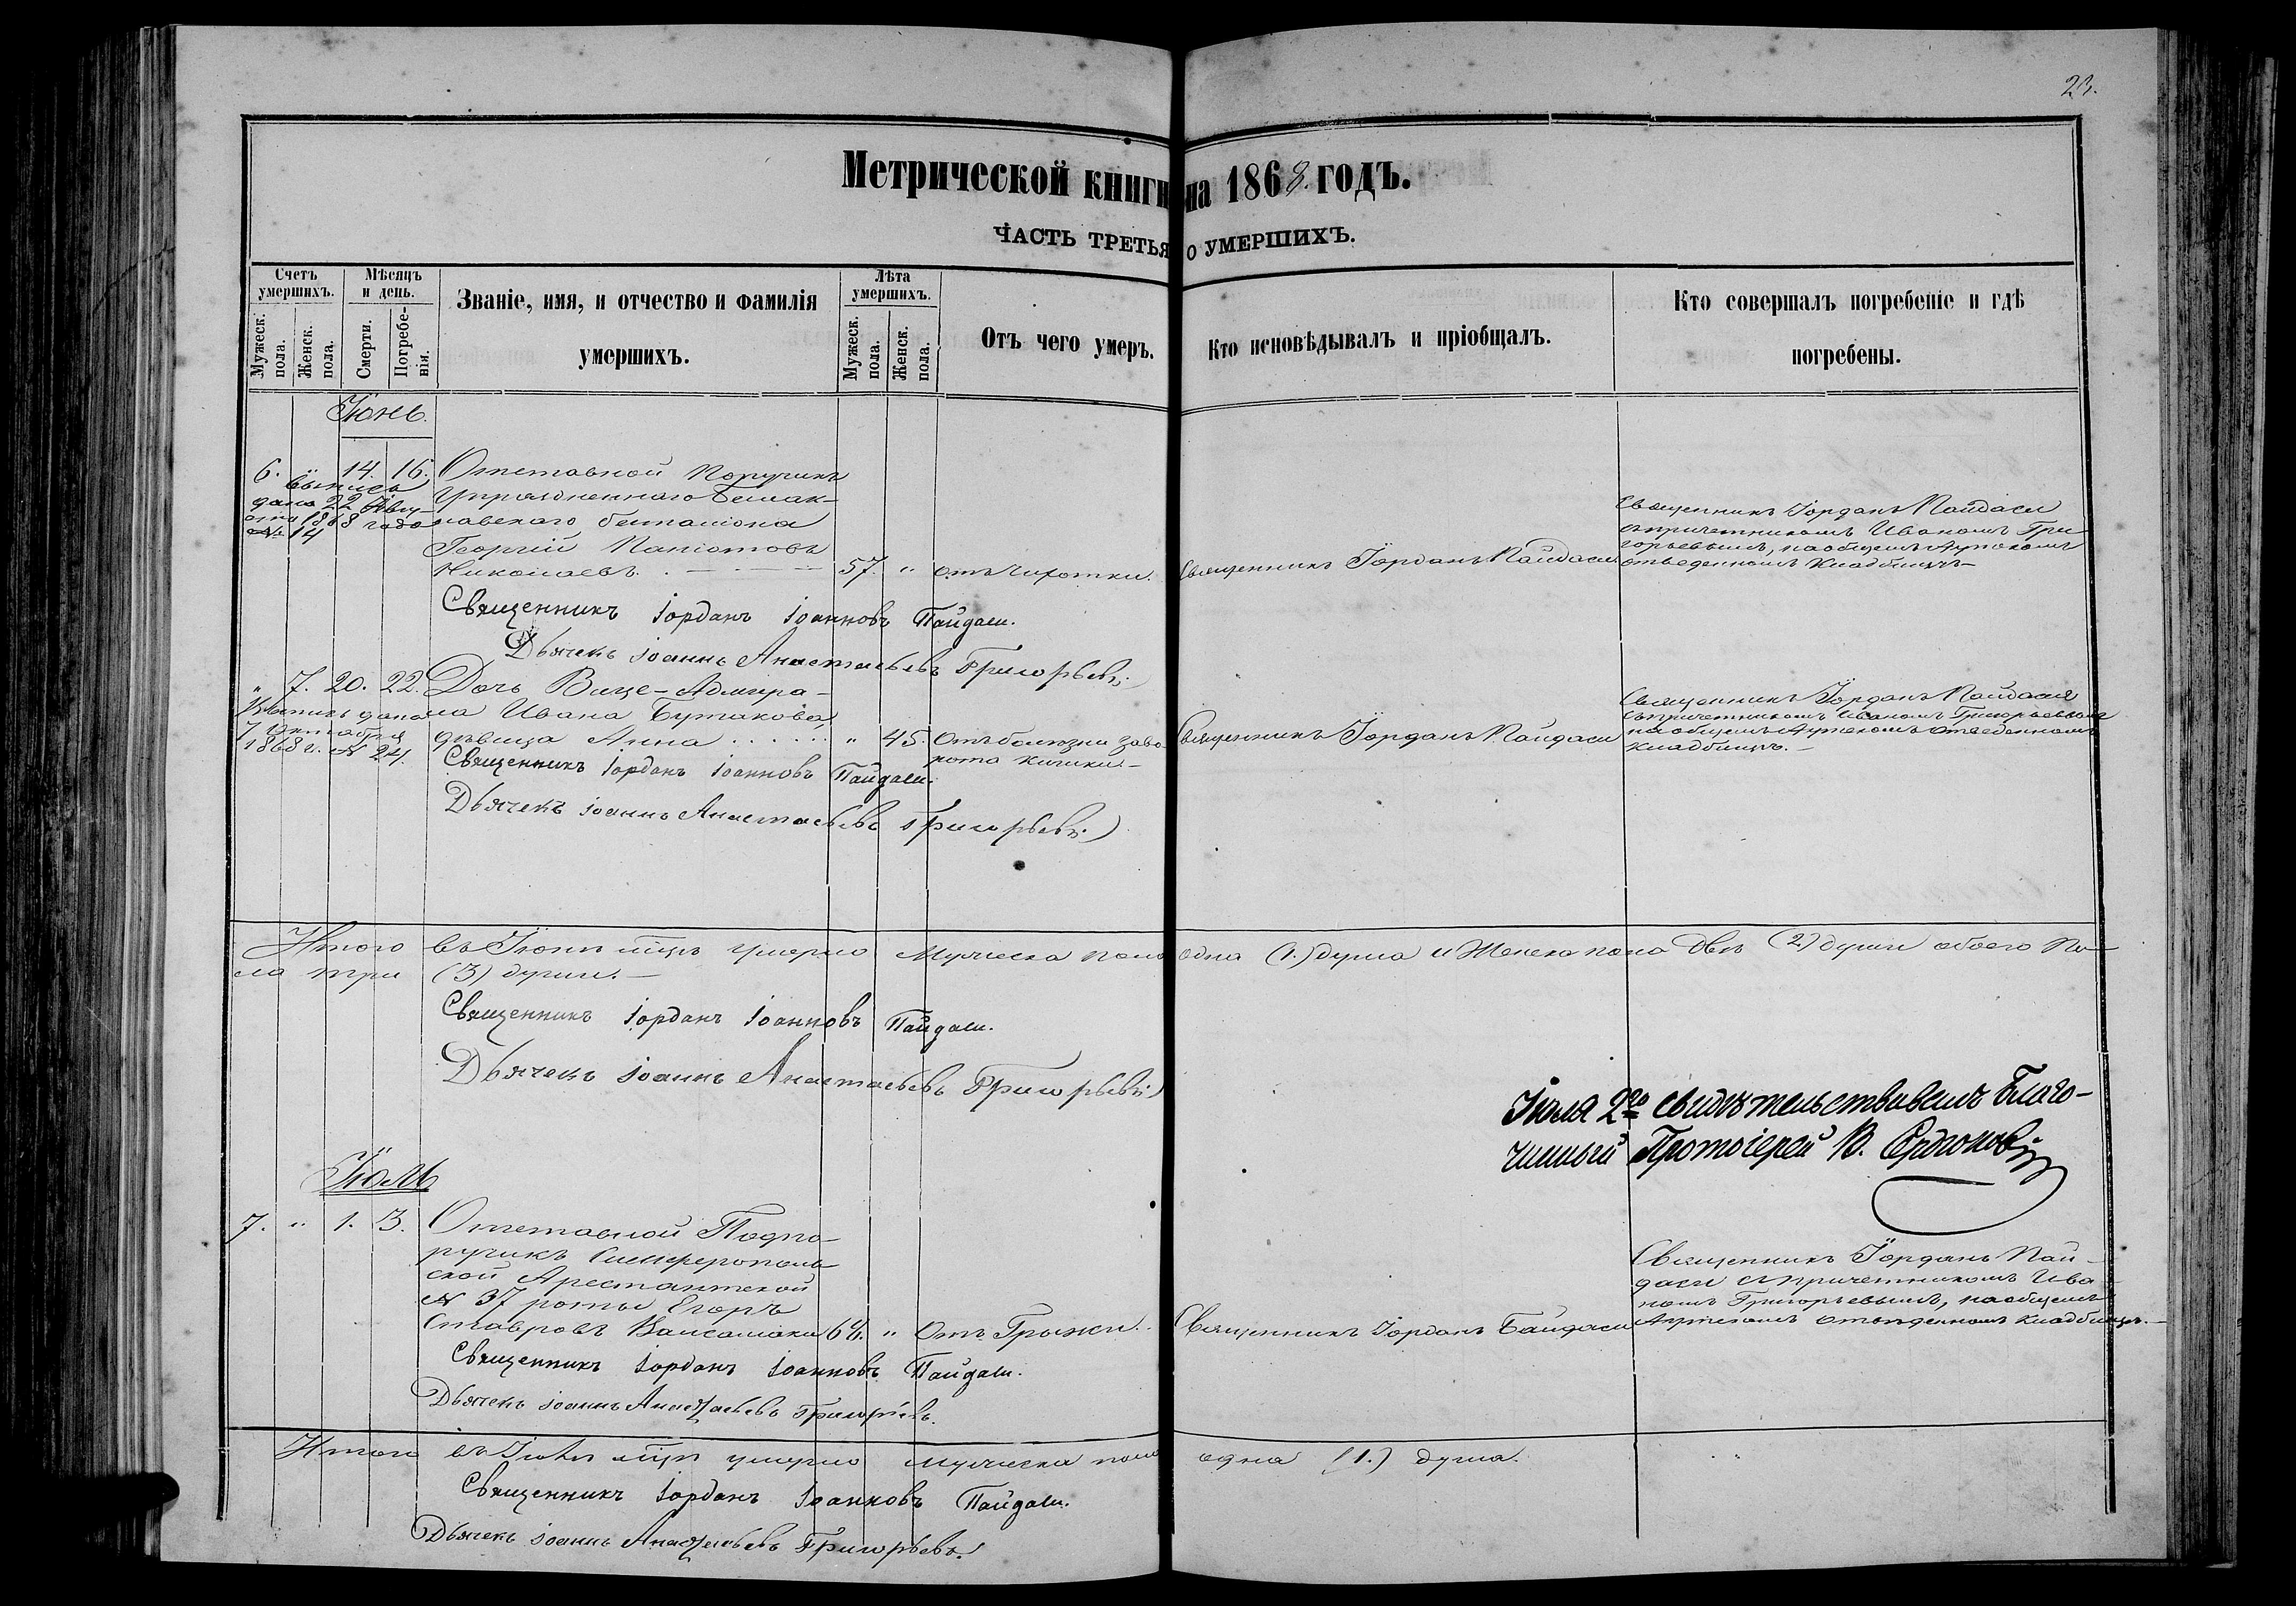 23.
Метрической книги на 1868. годъ.
ЧАСТЬ ТРЕТЬЯ О УМЕРШИХЪ.
Счетъ умершихъ.
Мужеск. пола.
Женск. пола.
Мѣсяцъ и день.
Смерти.
Погребенія.
Званіе, имя, и отчество и фамилія
умершихъ.
Лѣта умершихъ.
Мужеск. пола.
Женск. пола.
Отъ чего умеръ.
Кто исповѣдывалъ и пріобщалъ.
Кто совершалъ погребеніе и гдѣ
погребены.
Іюнь.
6. " 14. 16. Отставной Поручикъ
Выпись
дана 22 Авгу-
ста 1868 года
№ 14
Упраздненнаго Балак-
лавскаго баталіона
Георгій
Николаевъ. 57. " отъ чахотки. Священникъ Іорданъ Пайдаси
Священникъ Іорданъ Пайдаси
съ причетникомъ Иваномъ Гри
горьевымъ, на общемъ Аутскомъ
отведенномъ кладбищѣ
Священникъ Іорданъ Іоанновъ Пайдаси.
Дьячекъ Іоаннъ Анастасьевъ Григорьевъ.
" 7. 20. 22. Дочь Вице-Адмира-
ла Ивана Бутакова,
дѣвица Анна " 45. Отъ болѣзни заво-
рота кишки.
Выпись дана
7 Октября
1868 г. № 24.
Священникъ Іорданъ Пайдаси
Священникъ Іорданъ Пайдаси
съ причетникомъ Иваномъ Григорьевымъ
на общемъ Аутскомъ отведенномъ
кладбищѣ.
Священникъ Іорданъ Іоанновъ Пайдаси.
Дьячекъ Іоаннъ Анастасьевъ Григорьевъ.
Итого въ Іюнѣ мцѣ умерло Мужеска пола одна (1.) душа и Женска пола двѣ (2.) души обоего по-
ла три (3) души.
Священникъ Іорданъ Іоанновъ Пайдаси.
Дьячекъ Іоаннъ Анастасьевъ Григорьевъ.
Іюля 2го свидѣтельствовалъ Благо-
чинный Протоіерей
Іюль
7. " 1. 3. Отставной Подпо-
ручикъ Симферополь
ской Арестантской
№ 37 роты Егоръ
Ставровъ 64. " Отъ Грыжи. Священникъ Іорданъ Байдаси
Священникъ Іорданъ Пай-
даси съ причетникомъ Ива
номъ Григорьевымъ, на общемъ
Аутскомъ отведенномъ кладбищѣ.
Священникъ Іорданъ Іоанновъ Пайдаси.
Дьячекъ Іоаннъ Анастасьевъ Григорьевъ.
Итого въ Іюлѣ мцѣ умерло Мужеска пола одна (1.) душа.
Священникъ Іорданъ Іоанновъ Пайдаси.
Дьячекъ Іоаннъ Анастасьевъ Григорьевъ.